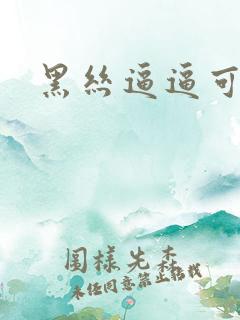 黑丝逼逼可
图样先森
未经同意禁止搭载